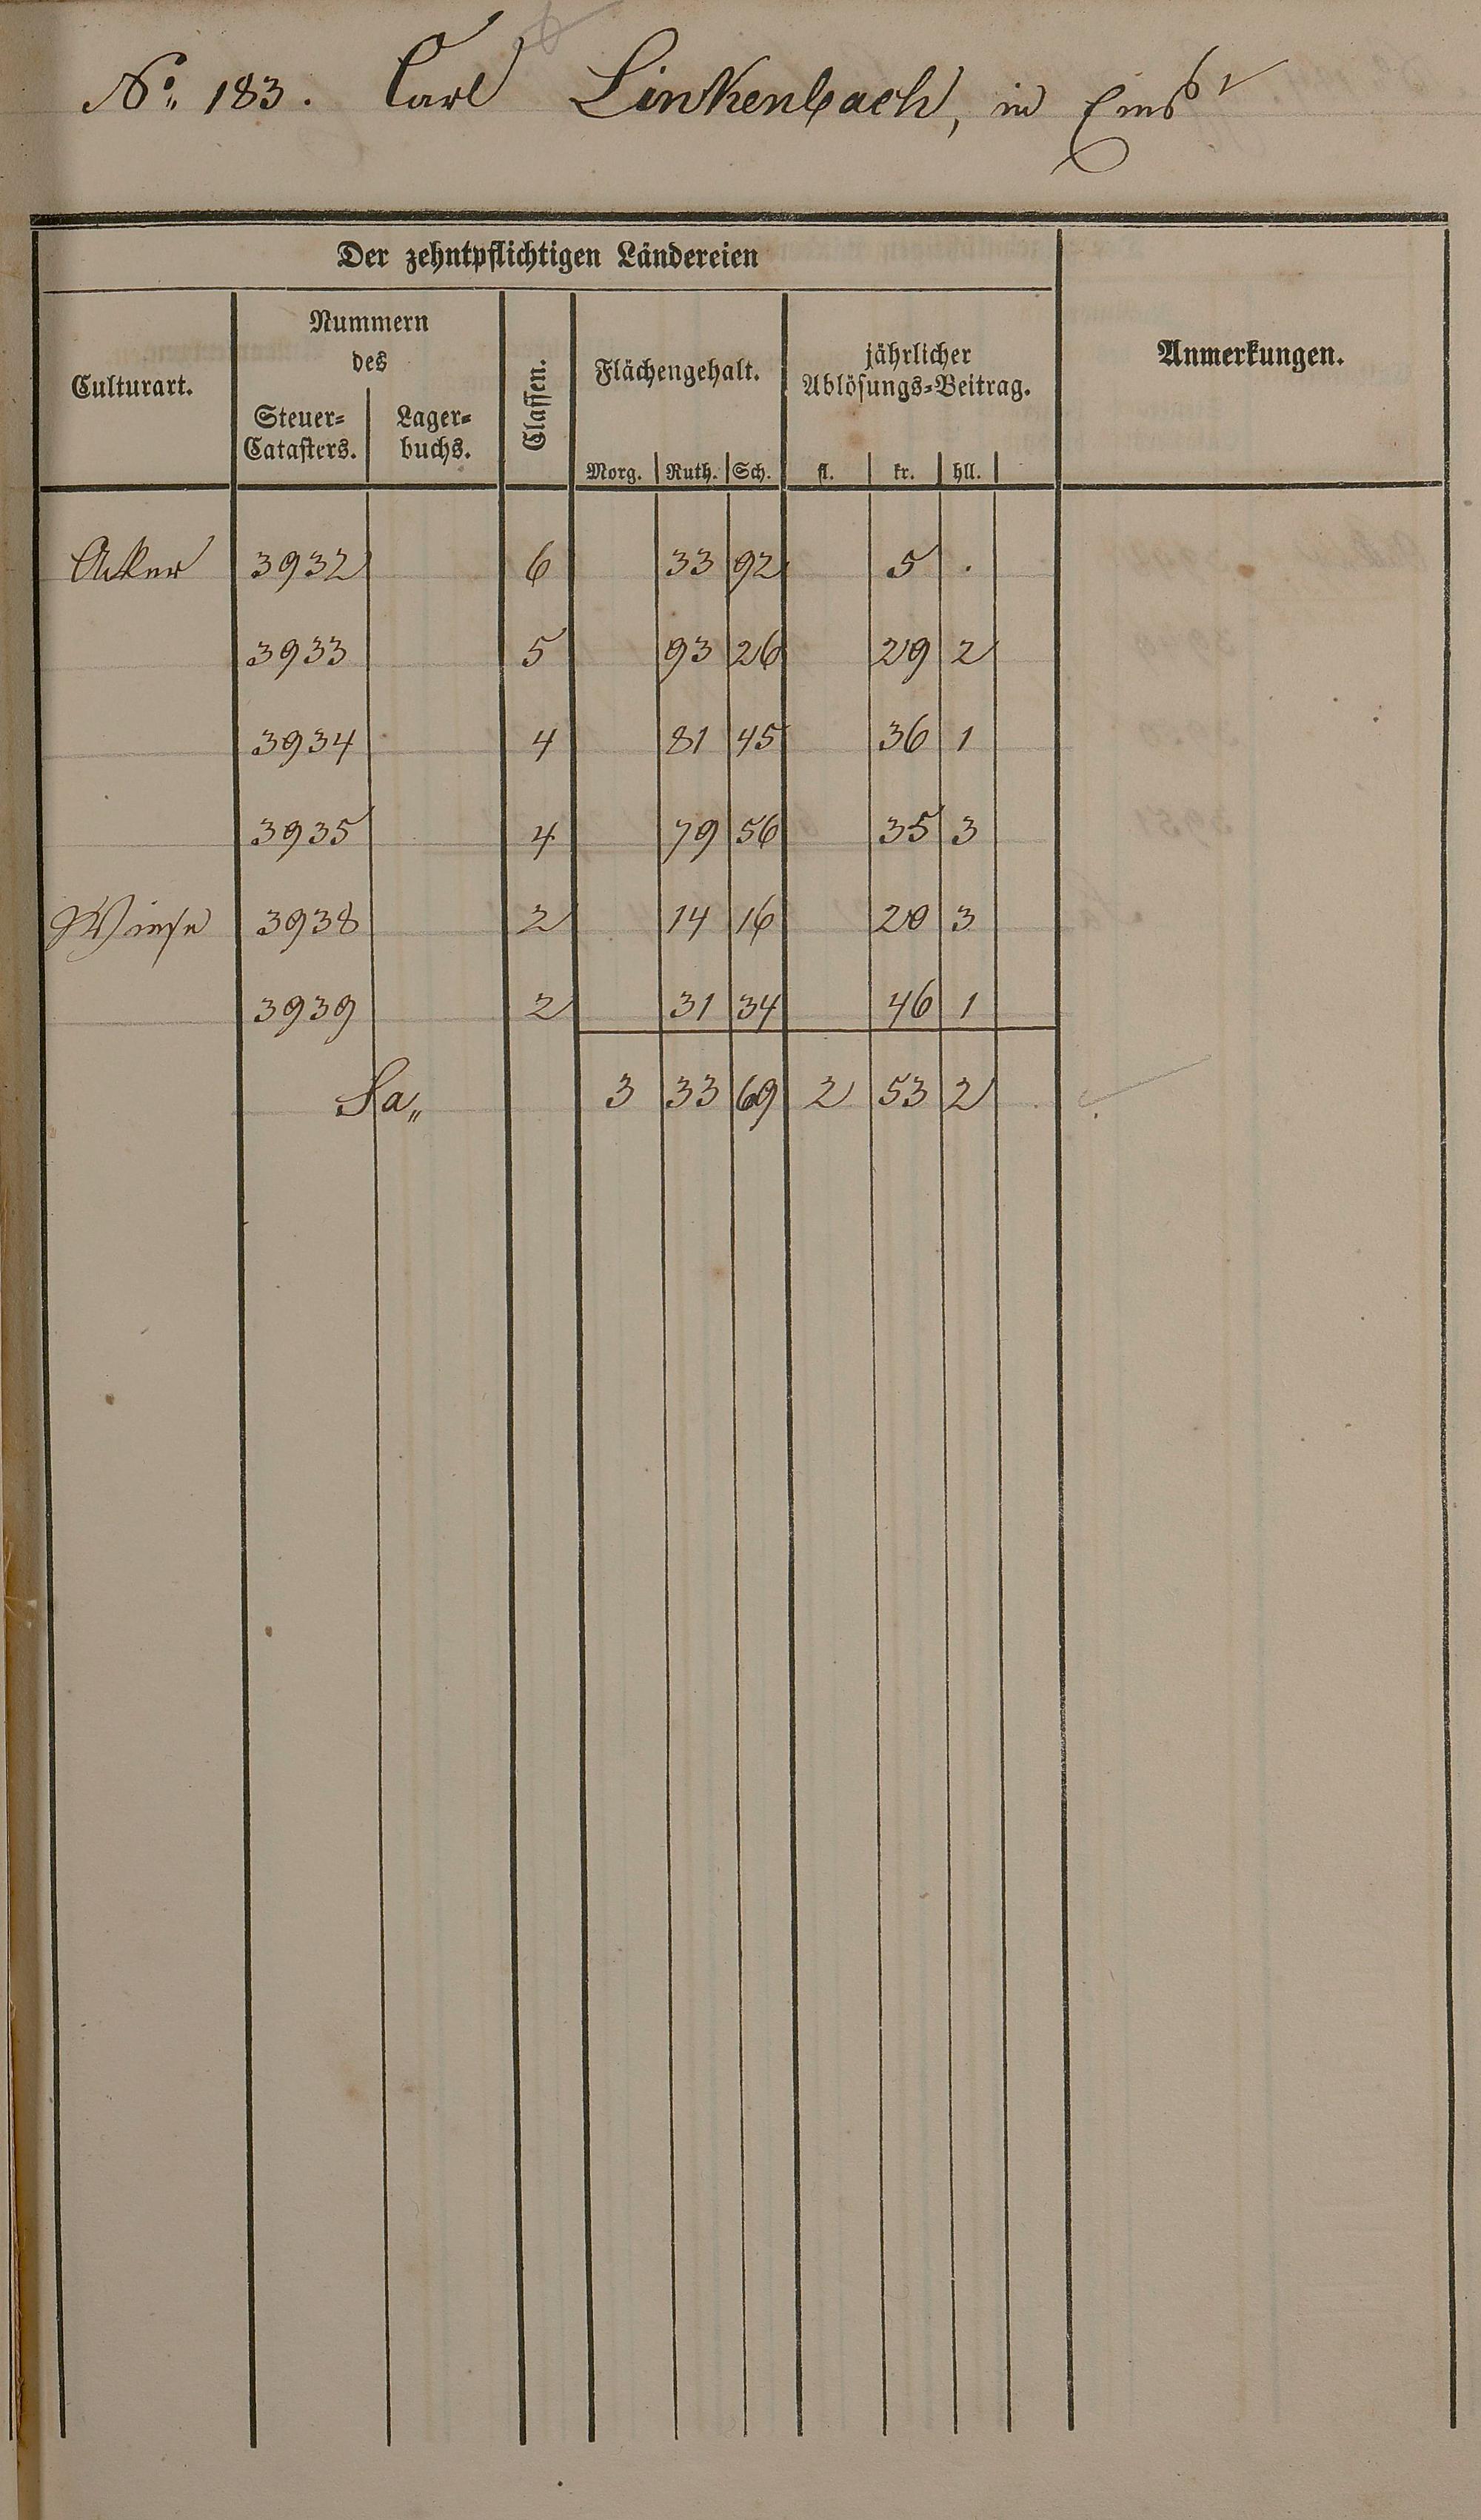 No. 183. Carl Linkenbach, in Ems
Der zehntpflichtigen Ländereien
Culturart.
Nummern
des
Steuer=
Catasters.
Lager=
buchs.
Classen.
Flächengehalt.
Morg. Ruth. Sch.
jährlicher
Ablösungs=Beitrag.
fl. kr. hll.
Anmerkungen.
Acker 3932 6 33 92 5 .
3933 5 93 26 29 2
3934 4 81 45 36 1
3935 4 79 56 35 3
Wiese 3938 2 14 16 20 3
3939 2 31 34 46 1
Sa„ 3 33 69 2 53 2